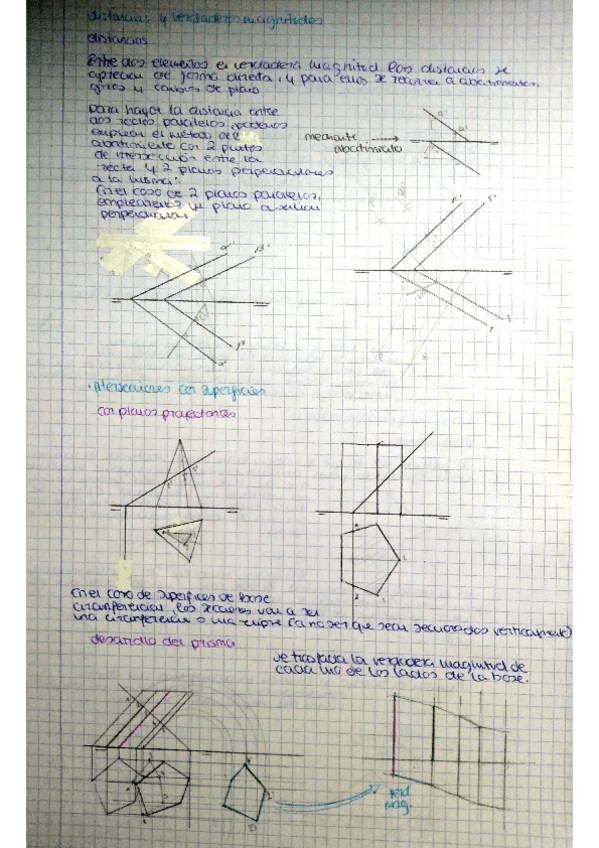 distancias y verdaderas magnitudes
distancias
Entre dos elementos en verdadera magnitud las distancias se
aprecian de forma directa, y para ellos se recurren a abatimientos
giros y cambios de plano
para hallar la distancia entre
dos rectas paralelas, podemos
emplear el método del
abatimiento con 2 puntos
de intersección entre la
recta y 2 planos perpendiculares
a la misma.
mediante
abatimiento
En el caso de 2 planos paralelos,
emplearemos un plano auxiliar
perpendicular
Intersecciones con superficies
con planos proyectantes
En el caso de superficies de base
circunferencias, las secciones van a ser
una circunferencia o una elipse (a no ser que sean seccionados verticalmente)
desarrollo del prisma
se traslada la verdadera magnitud de
cada uno de los lados de la base.
verd.
mag.